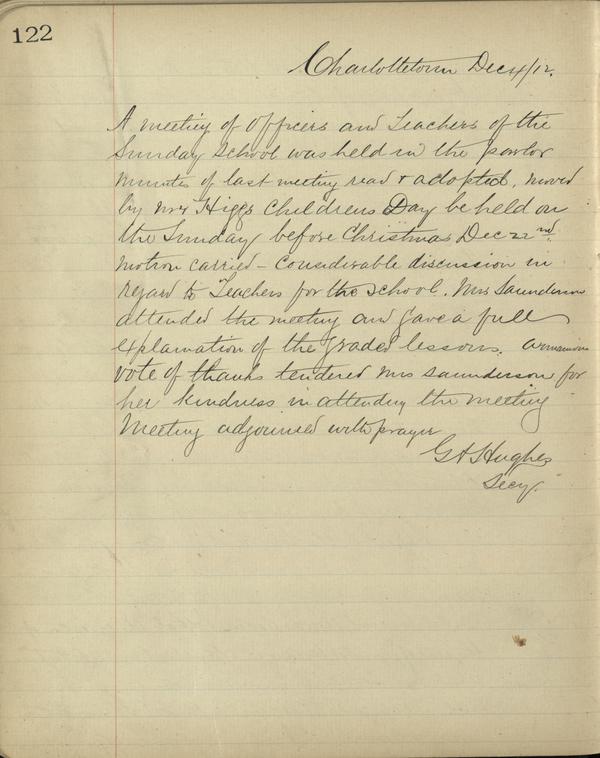 122
Charlottetown Dec 4/12.
A meeting of Officers and Teachers of the
Sunday School was held in the parlor
minutes of last meeting read & adopted, moved
by Mrs Higgs Childrens Day be held on
the Sunday before Christmas Dec 22nd.
motion carried - Considerable discussion in
regard to Teachers for the school. Mrs Saunderson
attended the meeting and gave a full
explanation of the graded lessons.
vote of thanks tendered Mrs Saunderson for
her kindness in attending the meeting
Meeting adjourned with prayer
Hughes
Secy.